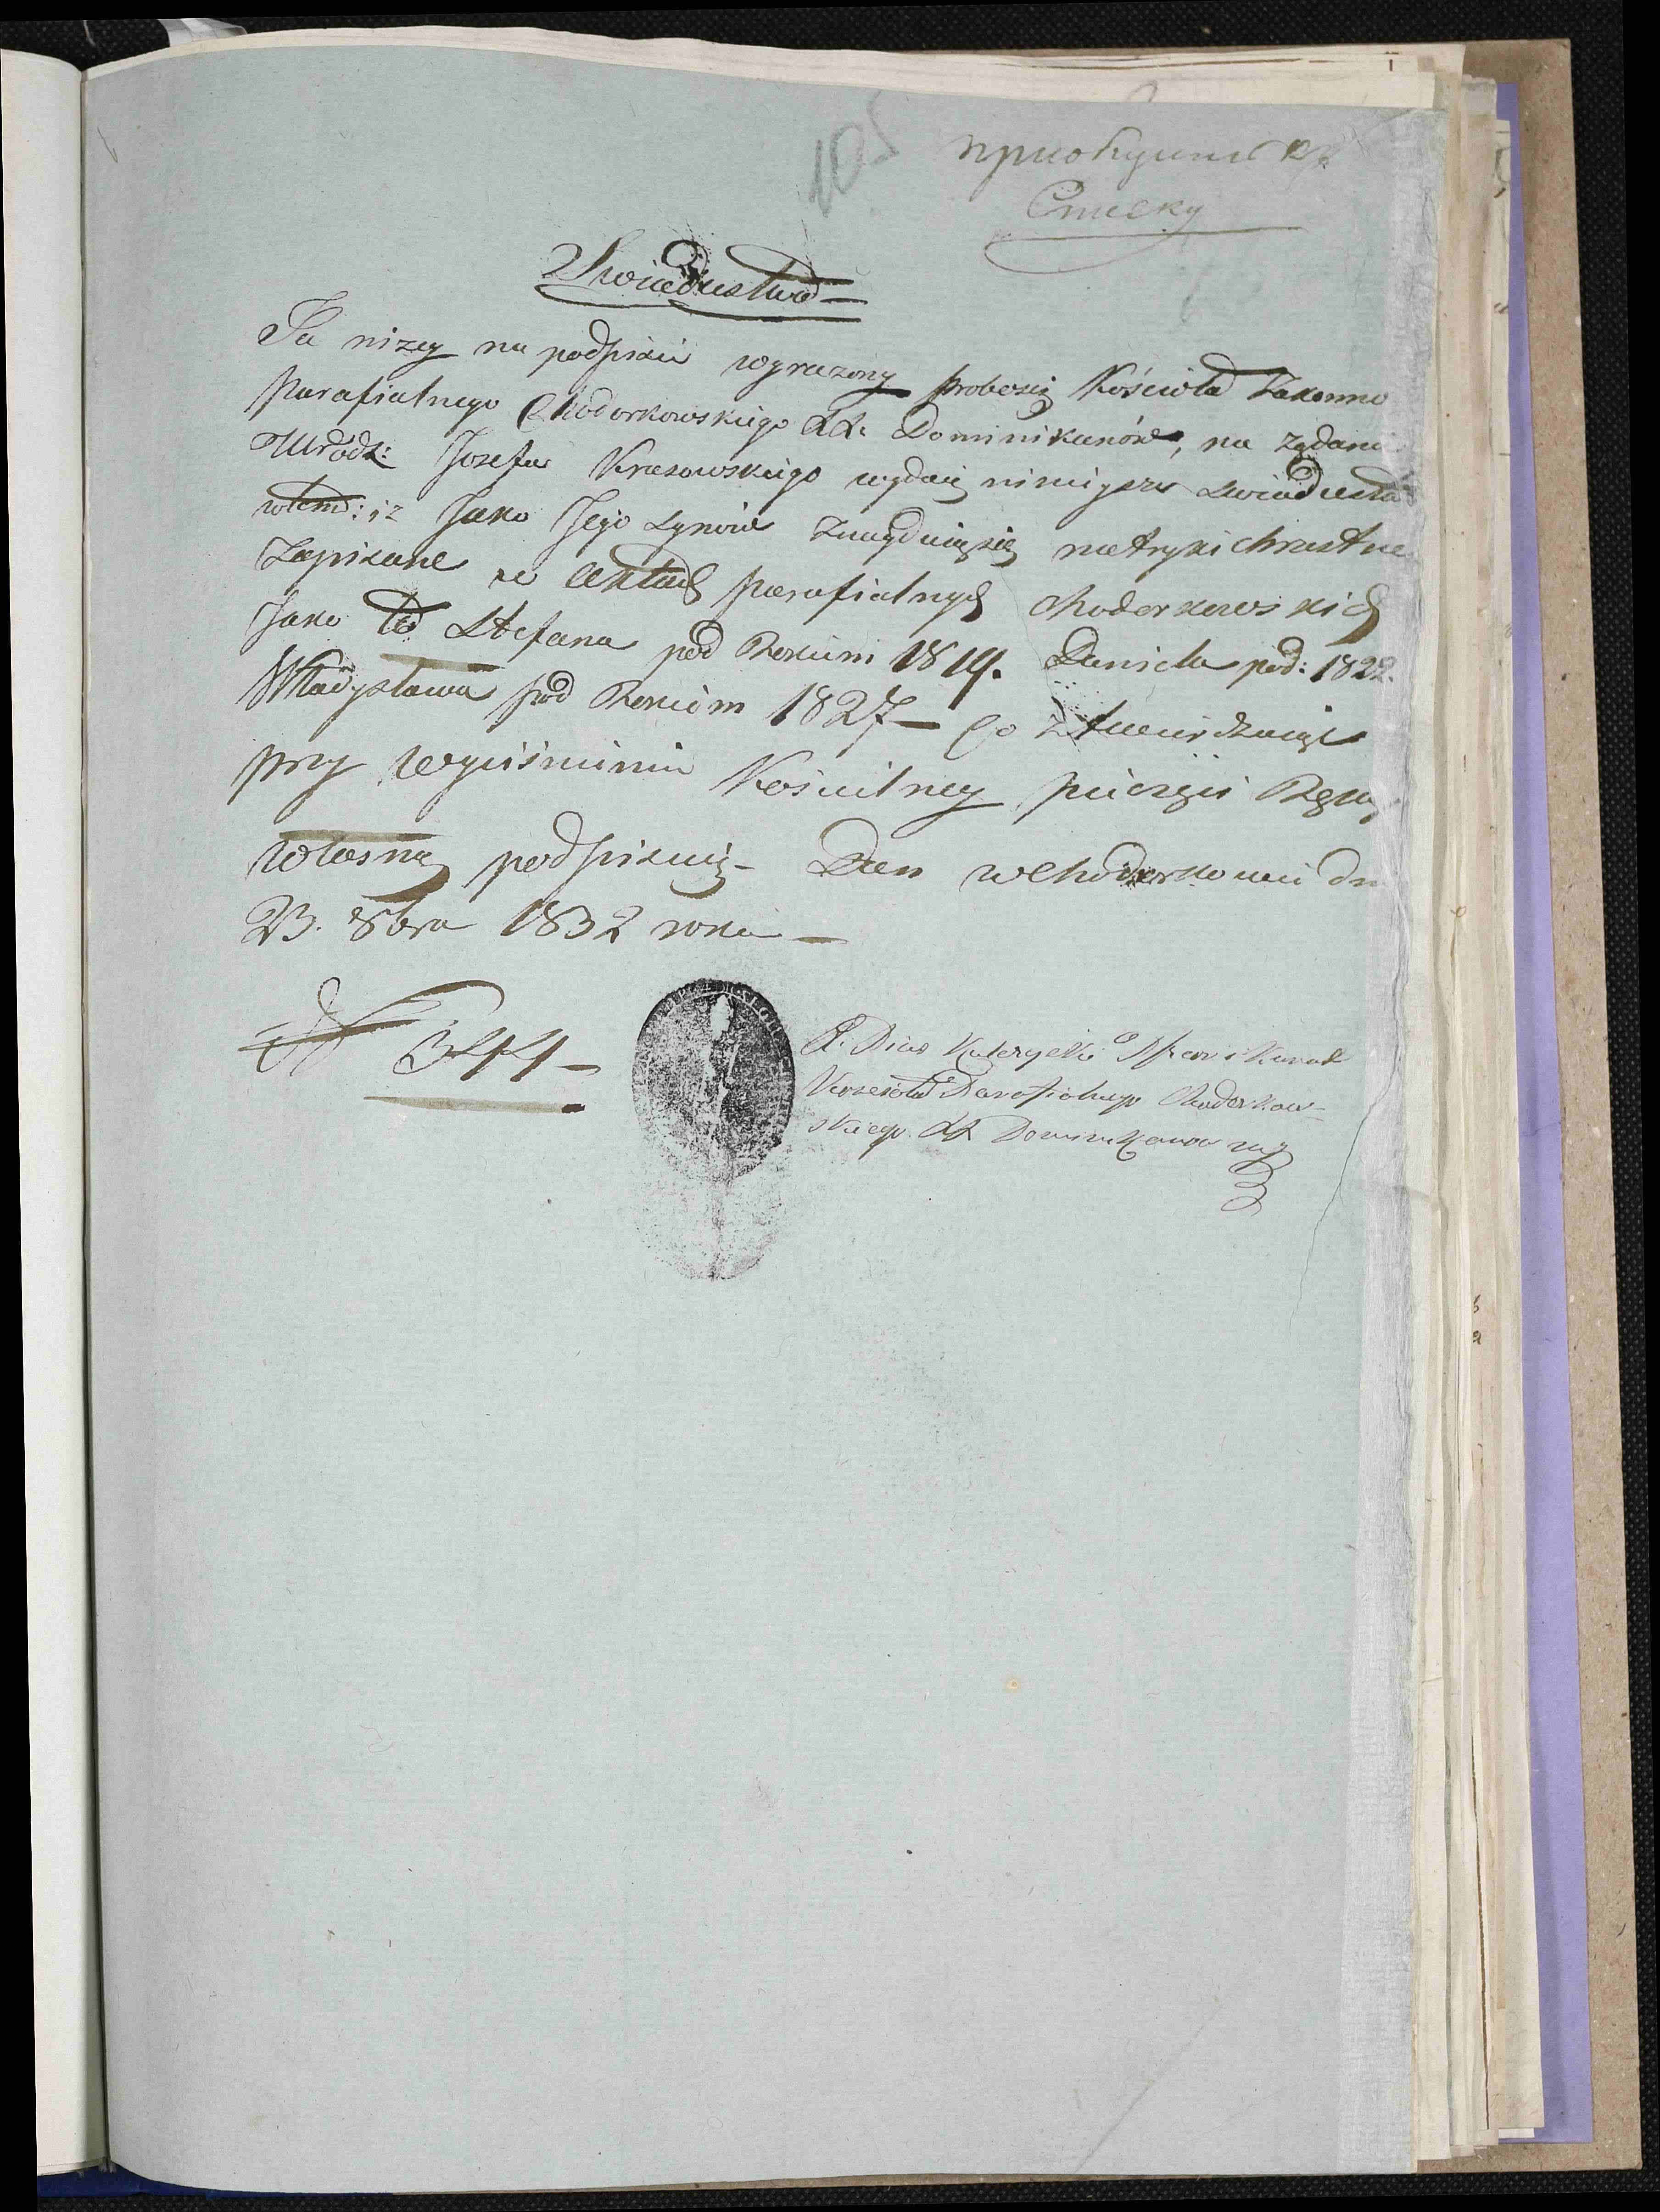 105
приобщить къ
Списку
Swiadectwo
Ja niżey na podpisie wyrazony proboszcz Kościoła Zakonno
Parafialnego Chodorkowskiego XX. Dominikanów, na żądanie
Urodz: Jozefa Krasowskiego wydaię ninieysze swiadectwo
wtem: iz Jako Jego Synów znayduią się metryki chrestne
Zapisane w Aktach parafialnych Chodorkowskich
Jako to Stefana pod Rokiem 1819. Daniela pod: 1822.
Władysława pod Rokiem 1827 – Co ztwierdzaiąc
przy wyciśnieniu Kościelney pieczęci Ręką
własną podpisuię – Dan w Chodorkowie dn
23. 8bra 1832 roka –
N 344 –
X. Pius
Koscioła Parafialnego Chodorkow-
skiego XX Dominikanow mp